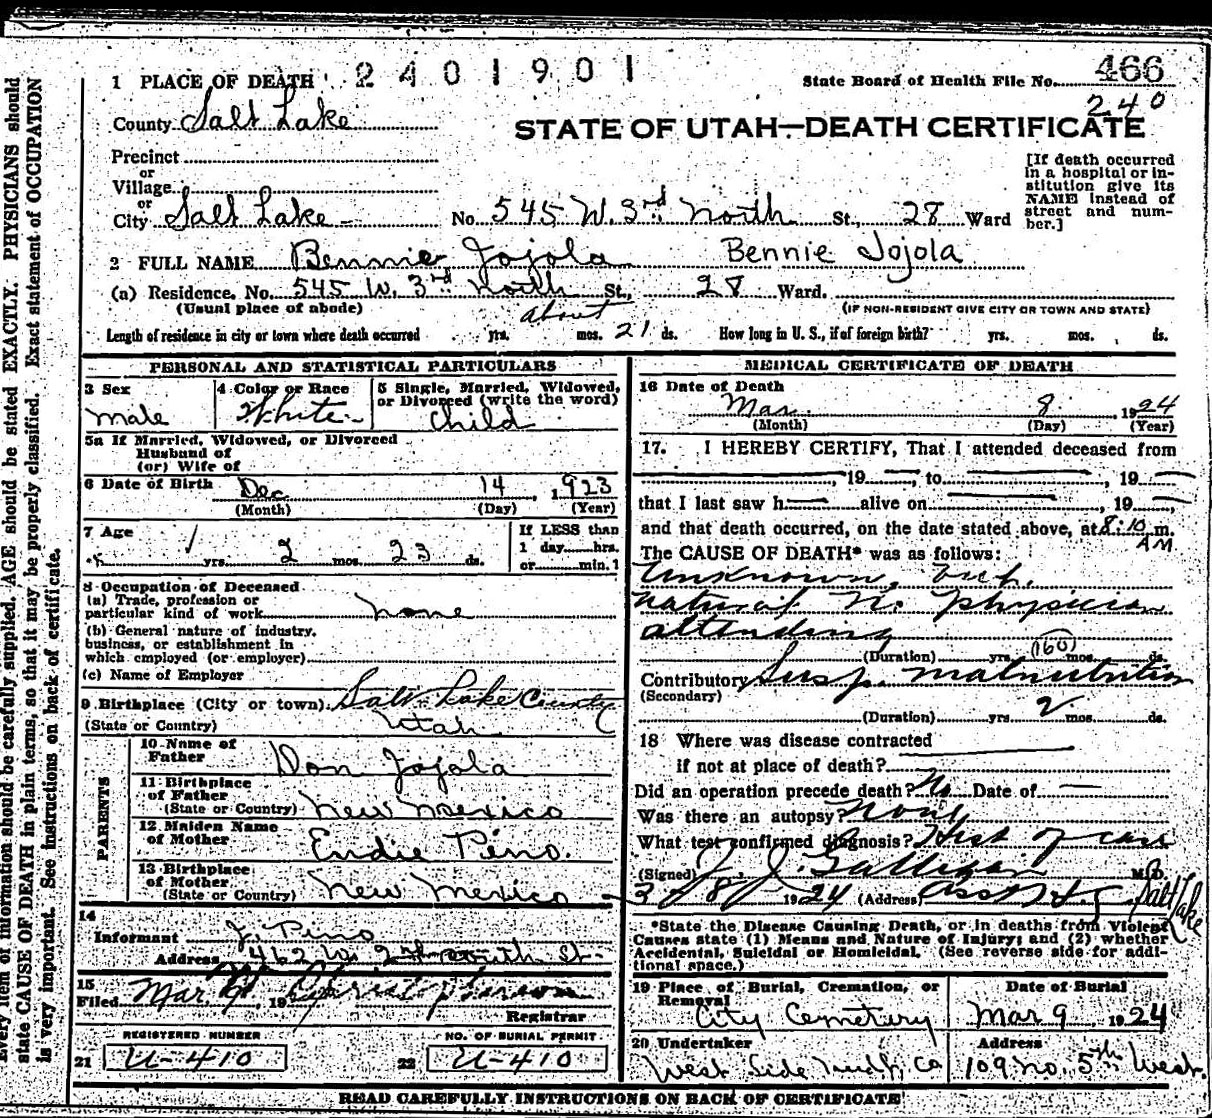 1 PLACE OF DEATH 2401901 State Board of Health File No. 466
County Salt Lake 240
STATE OF UTAH—DEATH CERTIFICATE
Precinct
or
Village
or
City Salt Lake No. 545 W. 3rd North St., 28 Ward
[If death occurred in a hospital or institution give its NAME instead of street and number.]
2 FULL NAME Bennie Jojola Bennie Jojola
(a) Residence. No. 545 W. 3rd North St., 28 Ward.
(Usual place of abode) (IF NON-RESIDENT GIVE CITY OR TOWN AND STATE)
about
Length of residence in city or town where death occurred yrs. mos. 21 ds. How long in U. S., if of foreign birth? yrs. mos. ds.
PERSONAL AND STATISTICAL PARTICULARS
3 Sex
male
4 Color or Race
White
5 Single, Married, Widowed, or Divorced (write the word)
Child
5a If Married, Widowed, or Divorced
Husband of
(or) Wife of
6 Date of Birth Dec 14, 1923
(Month) (Day) (Year)
7 Age 1 yrs. 2 mos. 23 ds.
If LESS than
1 day......hrs.
or......min.
8 Occupation of Deceased
(a) Trade, profession or
particular kind of work none
(b) General nature of industry,
business, or establishment in
which employed (or employer)
(c) Name of Employer
9 Birthplace (City or town) Salt Lake County
(State or Country) Utah
PARENTS
10 Name of
Father Don Jojola
11 Birthplace
of Father
(State or Country) New Mexico
12 Maiden Name
of Mother Pino.
13 Birthplace
of Mother
(State or Country) New Mexico
14
Informant J. Pino
Address 462 W. 2nd South St.
15
Filed Mar 9, 19
Registrar
REGISTERED NUMBER NO. OF BURIAL PERMIT
21 U-410 22 U-410
MEDICAL CERTIFICATE OF DEATH
16 Date of Death
Mar. 8, 1924
(Month) (Day) (Year)
17. I HEREBY CERTIFY, That I attended deceased from
, 19 , to , 19
that I last saw h alive on , 19 ,
and that death occurred, on the date stated above, at 8:10 m.
AM
The CAUSE OF DEATH* was as follows:
Unknown,
natural No physician
attending
(Duration) yrs. (160) mos. ds.
Contributory Susp. malnutrition
(Secondary)
(Duration) yrs. 2 mos. ds.
18 Where was disease contracted
if not at place of death?
Did an operation precede death? No Date of
Was there an autopsy? None
What test confirmed diagnosis? Hist of case
(Signed) J. J. Galligan M.D.
3/8/1924 (Address) Salt Lake
*State the Disease Causing Death, or in deaths from Violent
Causes state (1) Means and Nature of Injury; and (2) whether
Accidental, Suicidal or Homicidal. (See reverse side for addi-
tional space.)
19 Place of Burial, Cremation, or
Removal
City Cemetery
Date of Burial
Mar 9 1924
20 Undertaker
West Side Co
Address
109 No. 5th West
READ CAREFULLY INSTRUCTIONS ON BACK OF CERTIFICATE
Every item of information should be carefully supplied. AGE should be stated EXACTLY. PHYSICIANS should
state CAUSE OF DEATH in plain terms, so that it may be properly classified. Exact statement of OCCUPATION
is very important. See instructions on back of certificate.